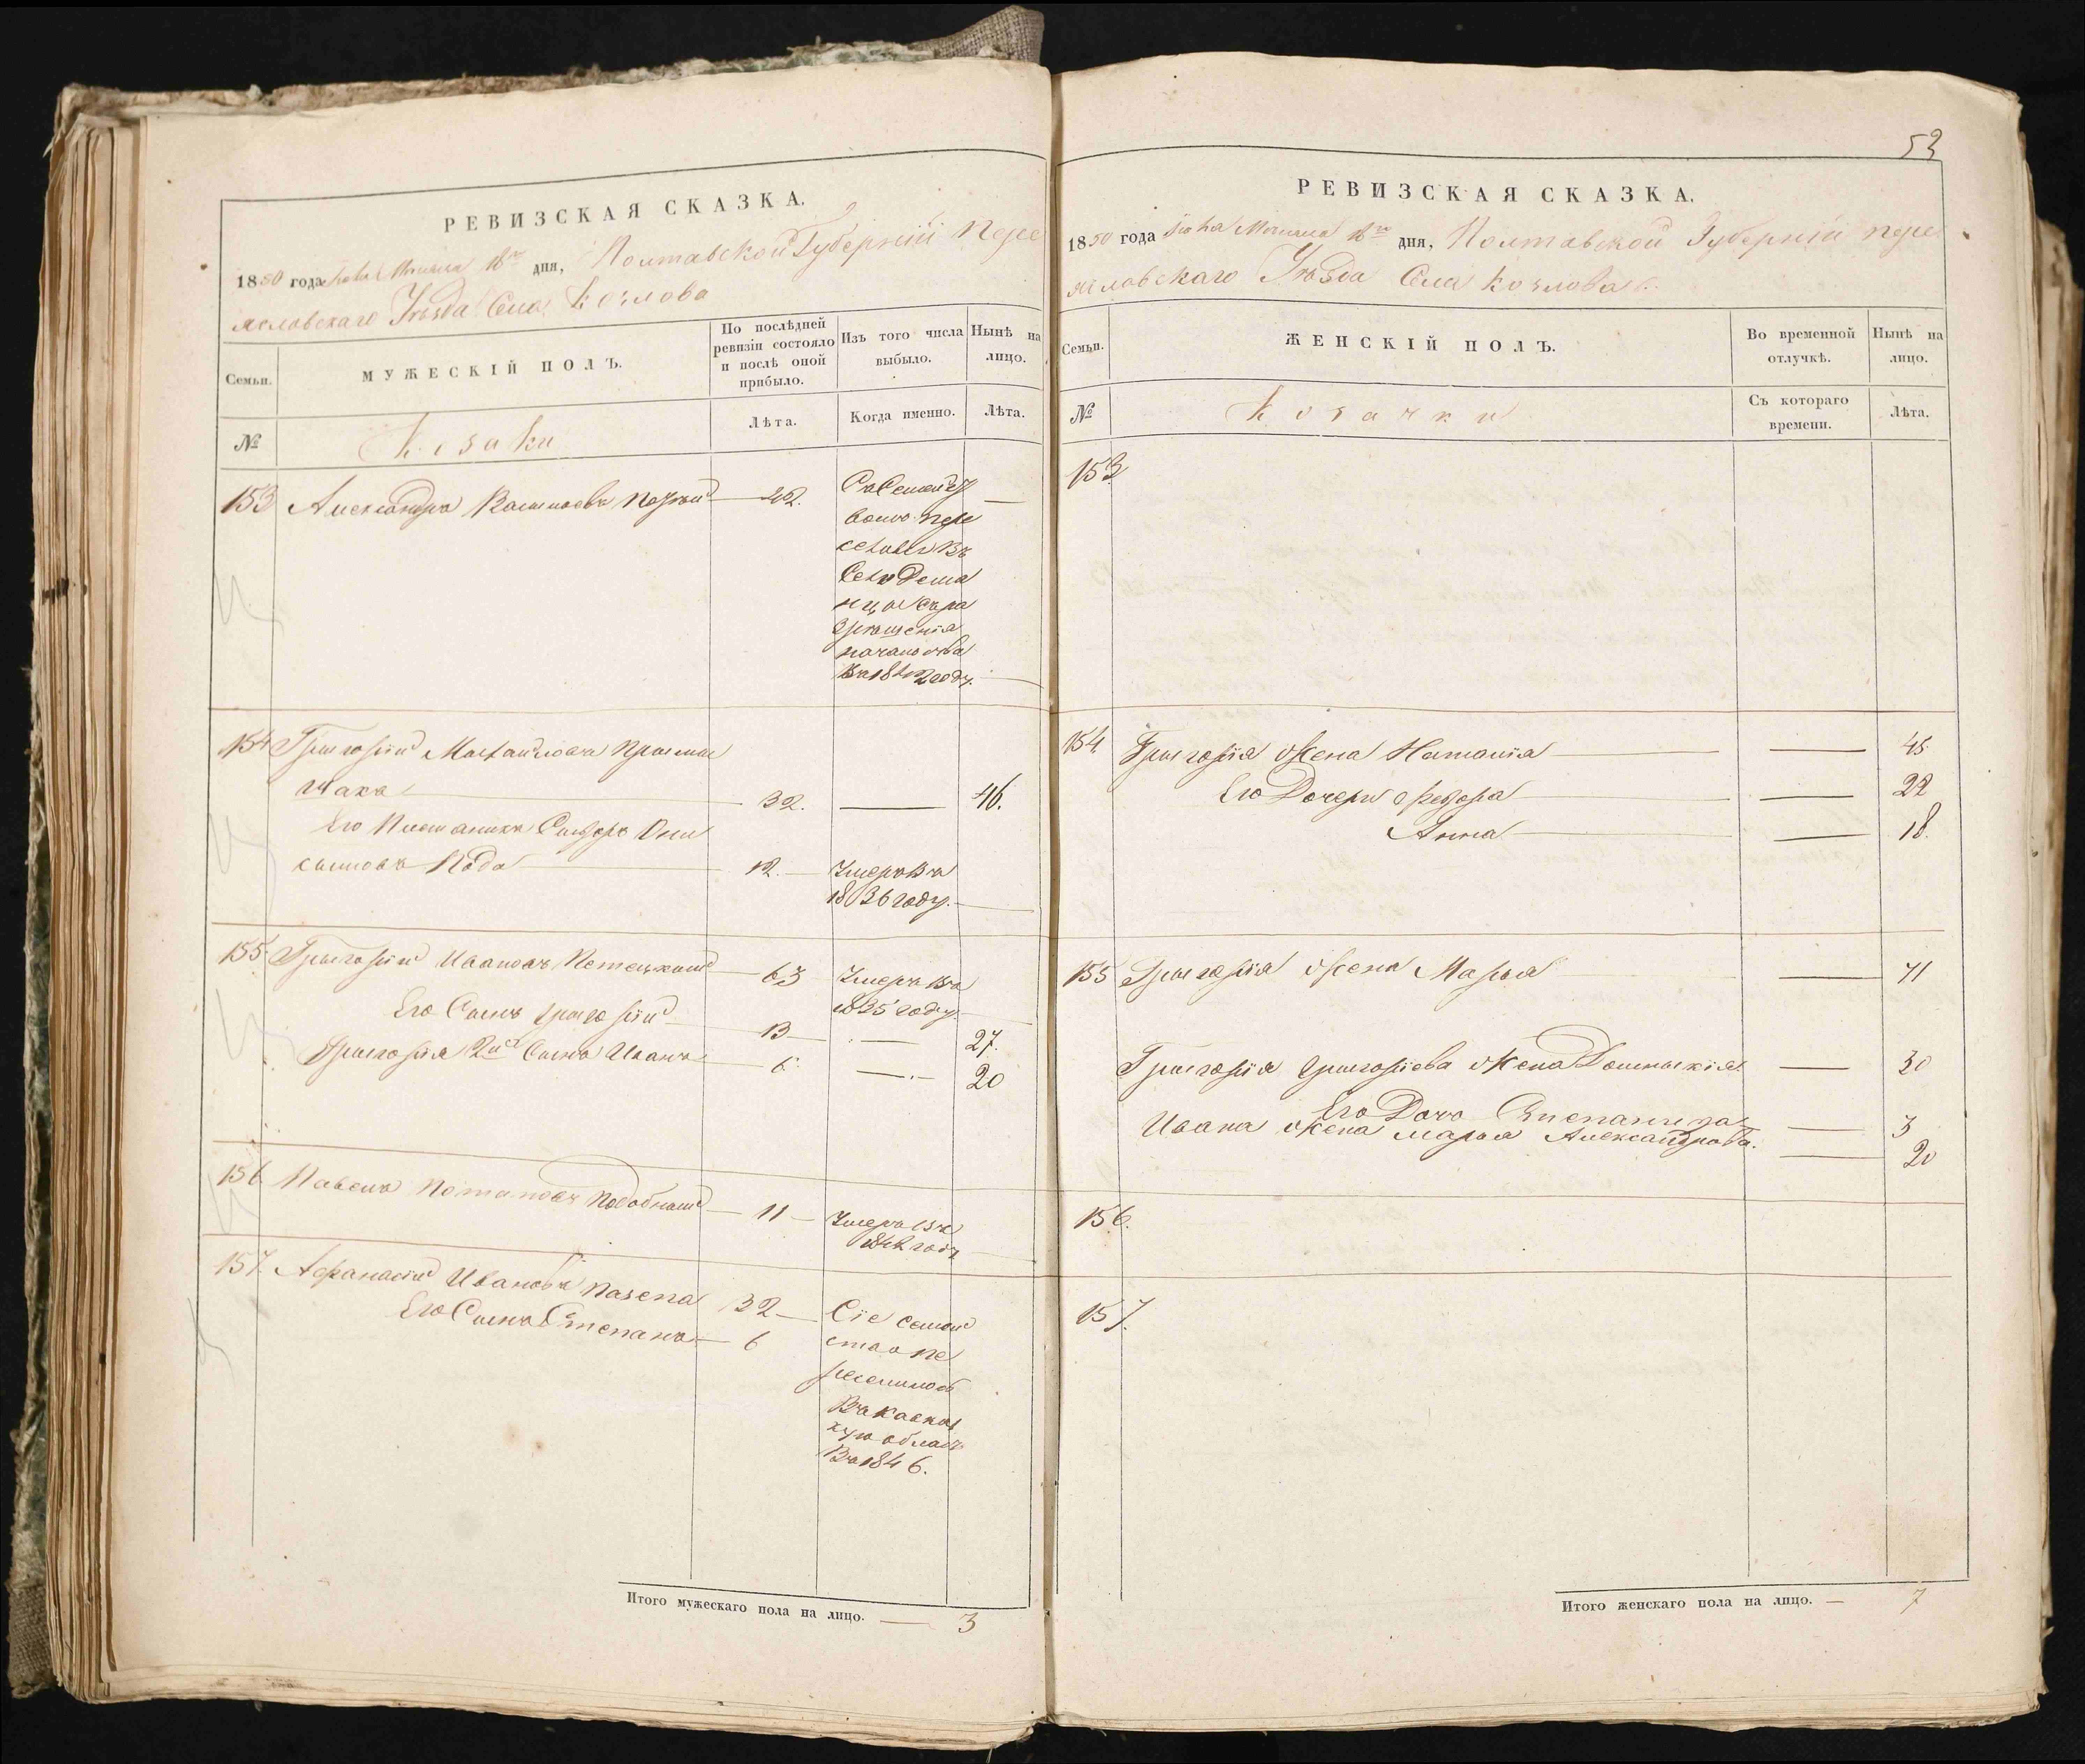 РЕВИЗСКАЯ СКАЗКА.
1850 года Июня Месяца 18го дня, Полтавской Губерніи Пере
яславскаго Уѣзда Села Козлова
Семьи.
МУЖЕСКІЙ ПОЛЪ.
По послѣдней ревизіи состояло и послѣ оной прибыло.
Изъ того числа выбыло.
Нынѣ на лицо.
№
Козаки
Лѣта.
Когда именно.
Лѣта.
153 Александръ Васильевъ 42.
Съ Семей
ствомъ пере
селенъ Въ
Село Деми
нцы Съ ра
зрѣшенія
начальства
Въ 18 году.
154 Григорій Михайловъ
32. — 46.
Его Племяникъ Сидоръ Они
симовъ 12. — Умеръ Въ
1836 году.
155 Григорій Ивановъ 63 Умеръ Въ
1835 году.
Его Сынъ Григорій 13 — 27.
Григорія 2й Сынъ Иванъ 6 — 20
156 Павелъ Потаповъ Подобный — 11 — Умеръ Въ
184 году
157. Афанасій Ивановъ 32 — Сіе семей
Его Сынъ Степанъ — 6 ство пе
реселилось
В Кавказ
кую область
Въ 1846.
Итого мужескаго пола на лицо. — 3
53
РЕВИЗСКАЯ СКАЗКА.
1850 года Июня Месяца 18го дня, Полтавской Губерніи Пере
яславскаго Уѣзда Села Козлова
Семьи.
ЖЕНСКІЙ ПОЛЪ.
Во временной отлучкѣ.
Нынѣ на лицо.
№
Козачки
Съ котораго времени.
Лѣта.
153
154 Григорія Жена Наталія — 45
Его Дочери Федора — 22
Анна — 18.
155 Григорія Жена Марья — 71
Григорія Григоріева Жена Домникія — 30
Его Дочь Степанида — 3
Ивана Жена Марья Александрова. — 20
156.
157.
Итого женскаго пола на лицо. — 7